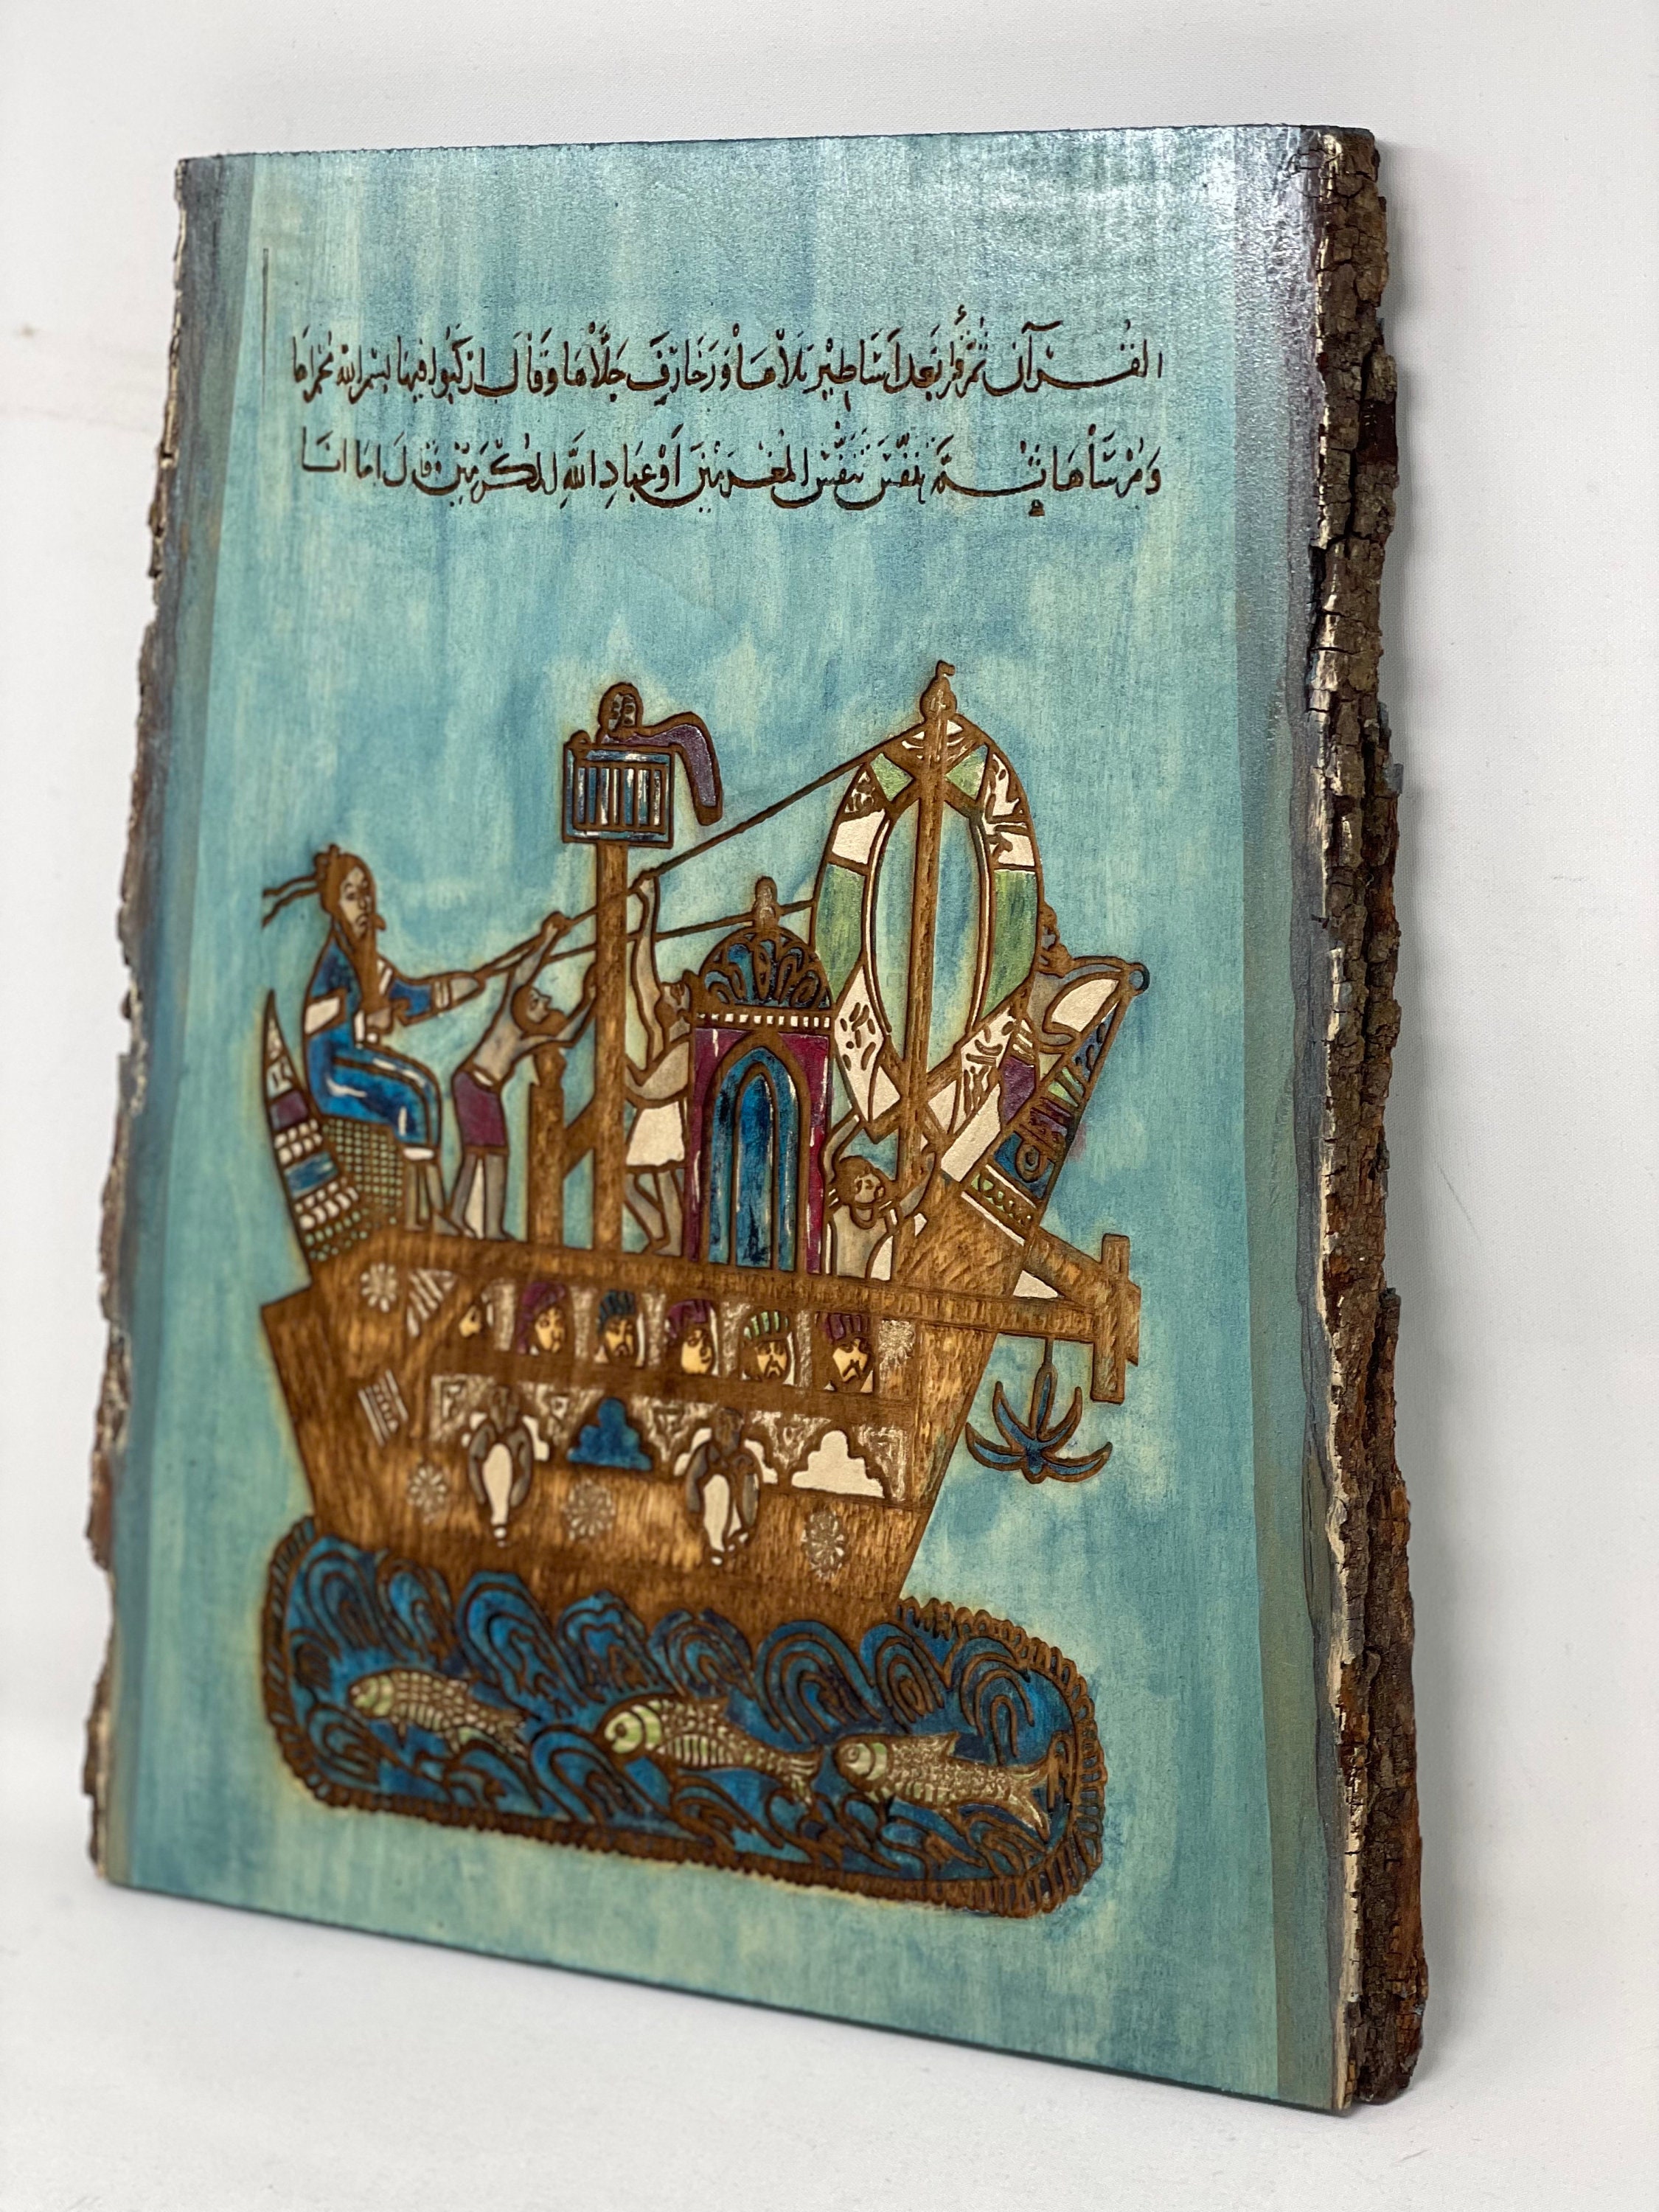 القُرآن ثُمَّ قرأ بَعد أسَاطِيْرَ تَلاْهَا وَزَخَارِفَ جَلَّاْهَا وَقَاْلَ ارْكَبُوا فِيهَا بِسْمِ اللهِ مُجْرَاهَا
وَمُرْسَاْهَا ثُمَّ تَنَفَّسَ تَنَفُّسَ المُغْرَمِيْنَ اَوْ عِبَادِ اللهِ المُكْرَمِيْنَ وَقَالَ اَمَا اَنَا